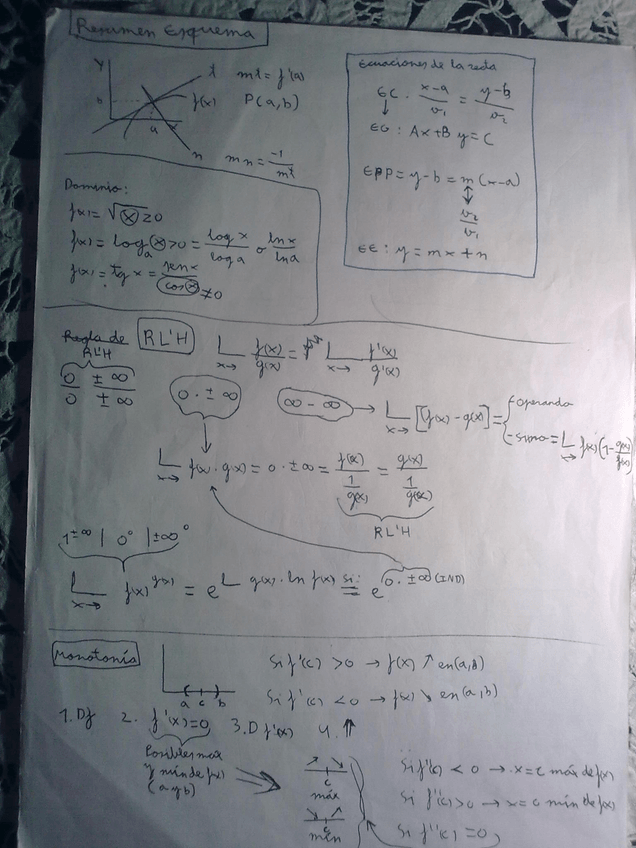 Resumen Esquema
y
t
mt = f'(a)
b
f(x)
P(a,b)
a
n
mn = -1/mt
Ecuaciones de la recta
EC: x-a/v₁ = y-b/v₂
EG: Ax+By=C
EPP = y-b = m(x-a)
v₂/v₁
EE: y = mx+n
Dominio:
f(x) = √x ≥0
f(x) = logₐ x >0 = log x/log a o ln x/ln a
f(x) = tg x = sen x/cos x ≠0
Regla de RL'H
L x→ f(x)/g(x) = L x→ f'(x)/g'(x)
RL'H
0/0 ±∞/±∞
0·±∞
∞-∞ → L x→ [f(x)-g(x)] = { operando
- si no = L x→ f(x)(1-g(x)/f(x))
L x→ f(x)·g(x) = 0·±∞ = f(x)/1/g(x) = g(x)/1/f(x)
RL'H
1^±∞ | 0⁰ | ±∞⁰
L x→ f(x)^g(x) = e^L g(x)·ln f(x) si: = e^0·±∞ (IND)
Monotonía
a c b
Si f'(c) >0 → f(x) ↗ en (a,b)
Si f'(c) <0 → f(x) ↘ en (a,b)
1. Df 2. f'(x)=0 3. D f'(x) 4. ⇑
Posibles max
y min de f(x)
(a y b)
c
máx
c
mín
Si f''(c) < 0 → x=c máx de f(x)
Si f''(c) >0 → x=c mín de f(x)
Si f''(c) =0